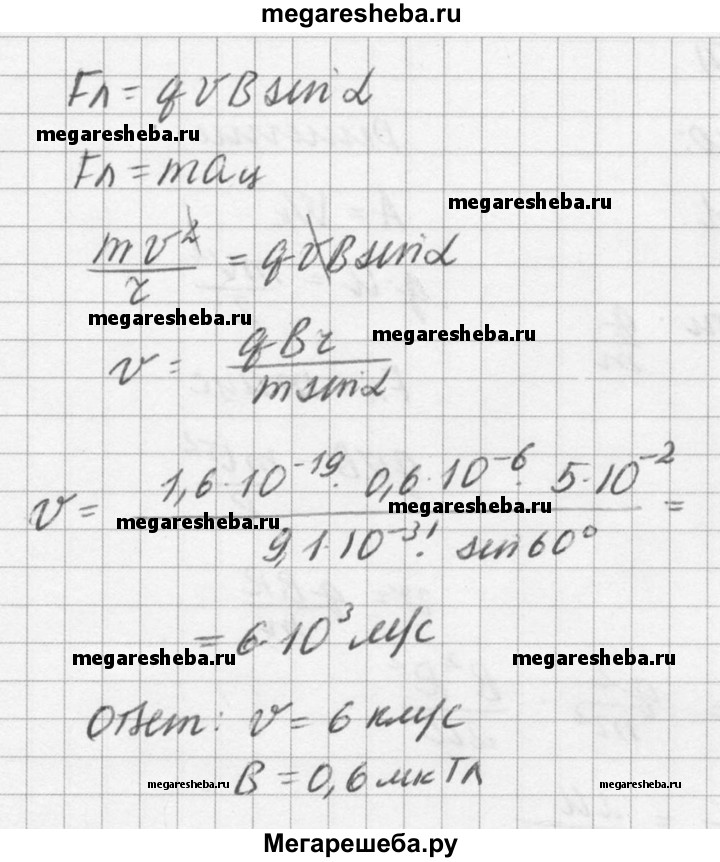 megaresheba.ru
Fл = qvB sin α
megaresheba.ru
Fл = maц
megaresheba.ru
mv²/r = qvB sin α
megaresheba.ru
megaresheba.ru
v = qBr / m sin α
v = 1,6·10⁻¹⁹· 0,6·10⁻⁶· 5·10⁻² / 9,1·10⁻³¹· sin 60° =
megaresheba.ru
megaresheba.ru
= 6·10³ м/с
megaresheba.ru
megaresheba.ru
Ответ: v = 6 км/с
B = 0,6 мкТл
megaresheba.ru
megaresheba.ru
Мегарешеба.ру